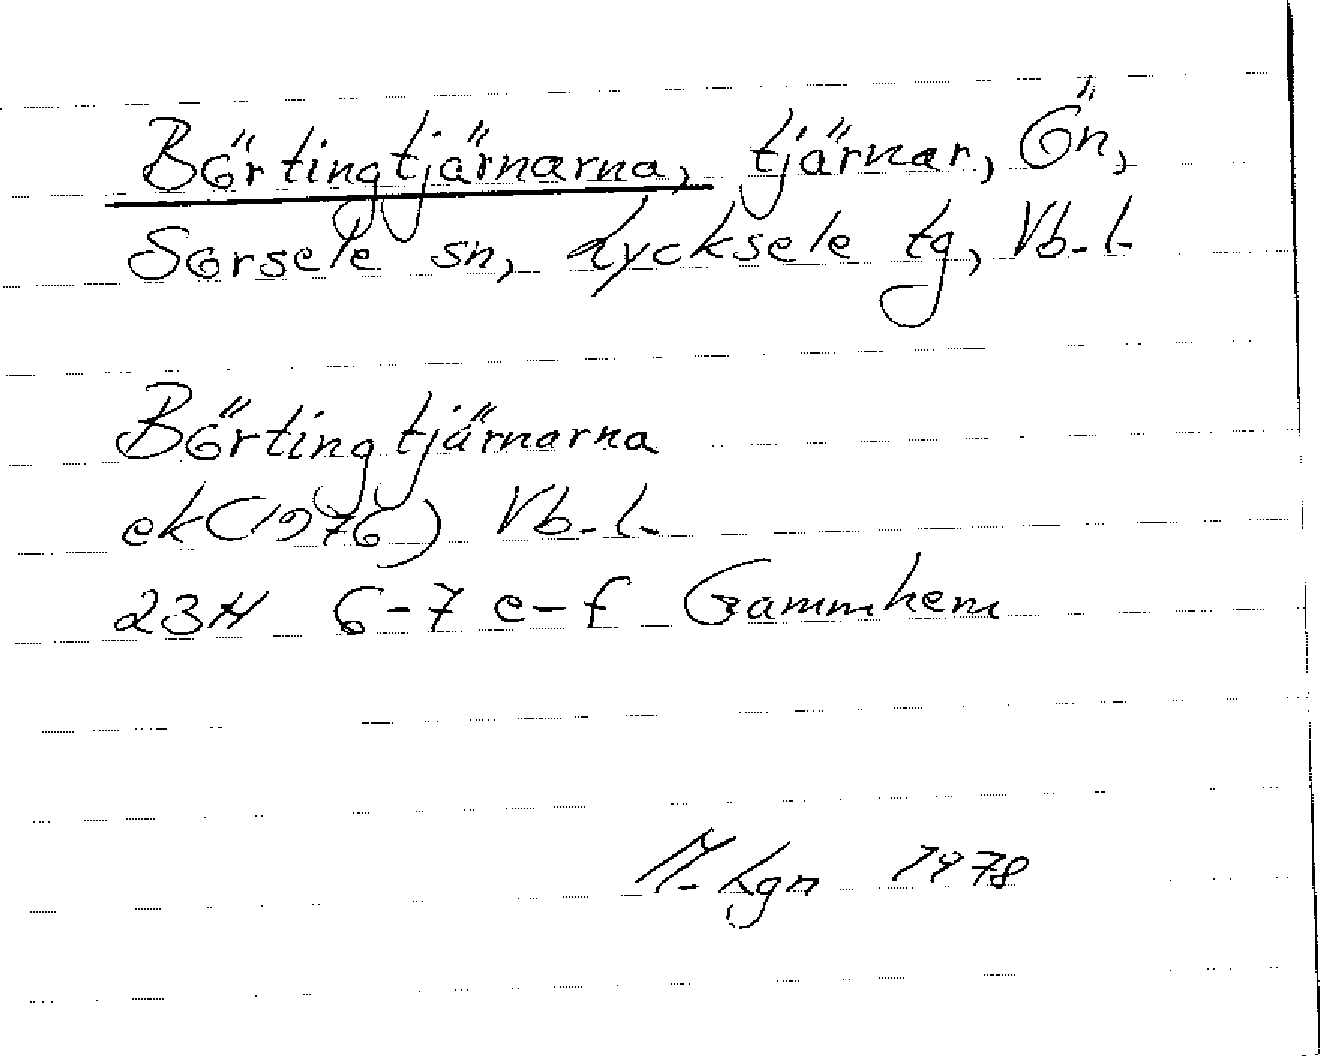 Börtingtjärnarna, tjärnar, Ön,
Sorsele sn, Lycksele tg, Vb. l.
Börtingtjärnarna
ek (1976) Vb. l.
23H 6-7 e-f Gammhem
Lgn 1978